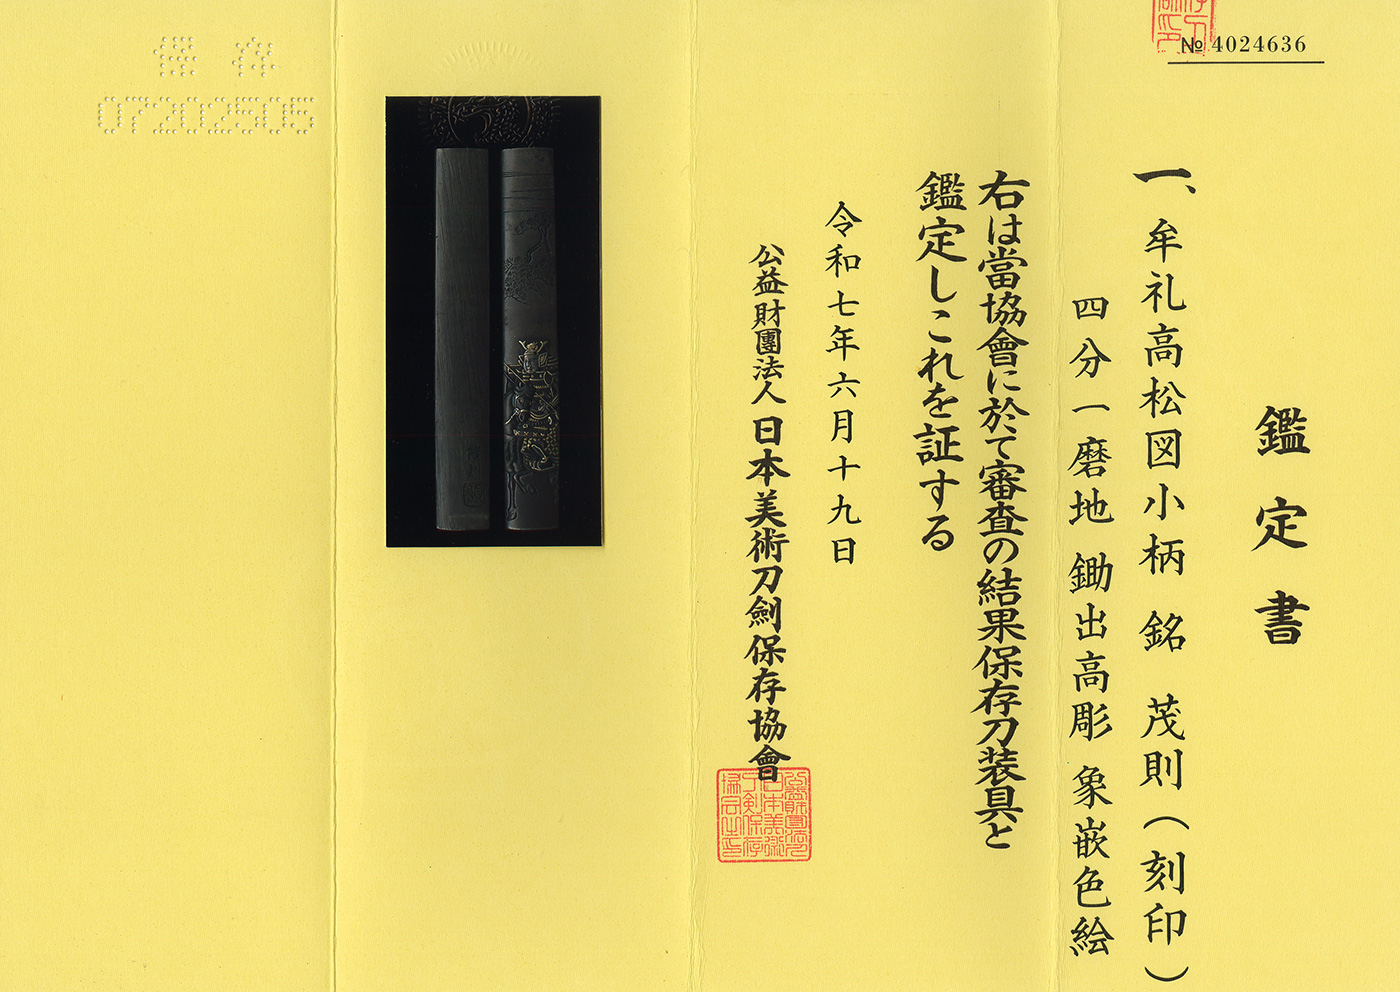 № 4024636
鑑定書
一、牟礼高松図小柄 銘 茂則(刻印)
四分一磨地 鋤出高彫 象嵌色絵
右は當協會に於て審査の結果保存刀装具と
鑑定しこれを証する
令和七年六月十九日
公益財團法人 日本美術刀劍保存協會
保存
07202505